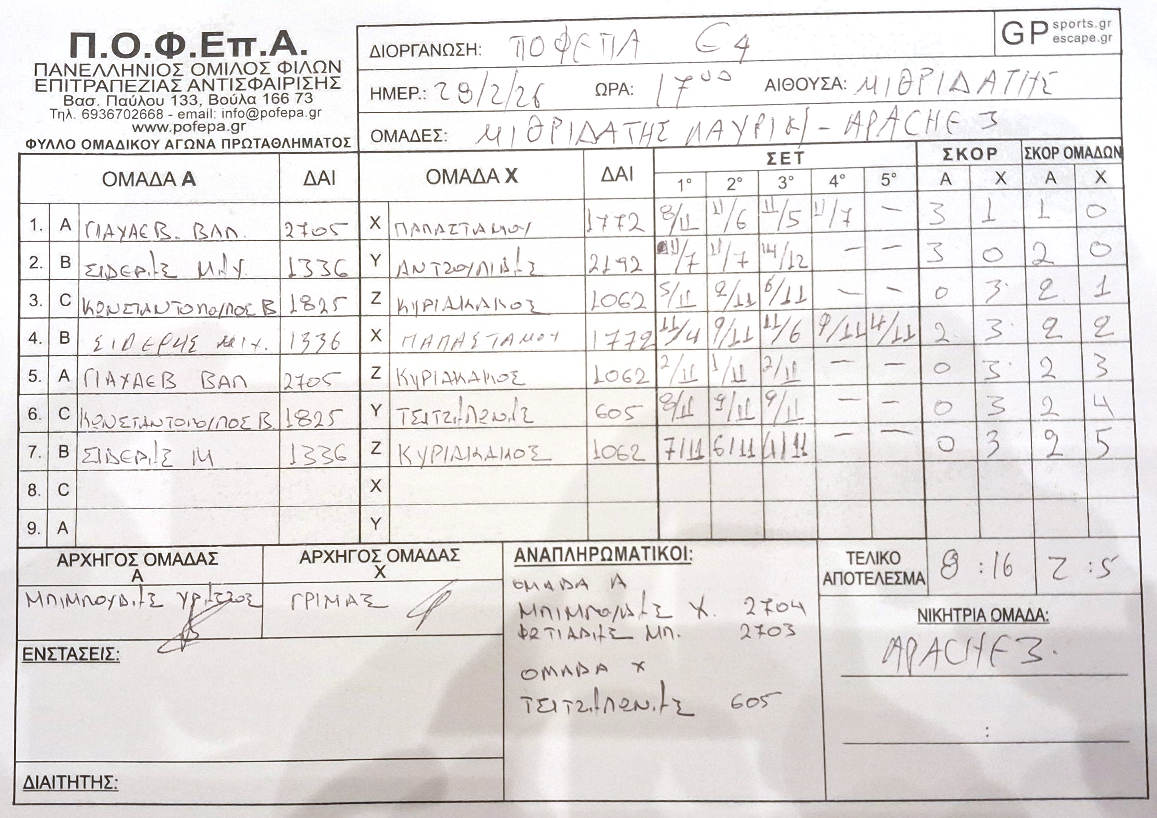 Π.Ο.Φ.Επ.Α.
ΠΑΝΕΛΛΗΝΙΟΣ ΟΜΙΛΟΣ ΦΙΛΩΝ
ΕΠΙΤΡΑΠΕΖΙΑΣ ΑΝΤΙΣΦΑΙΡΙΣΗΣ
Βασ. Παύλου 133, Βούλα 166 73
Τηλ. 6936702668 - email: info@pofepa.gr
www.pofepa.gr
ΦΥΛΛΟ ΟΜΑΔΙΚΟΥ ΑΓΩΝΑ ΠΡΩΤΑΘΛΗΜΑΤΟΣ
ΔΙΟΡΓΑΝΩΣΗ: ΠΟΦΕΠΑ G4
GP sports.gr
escape.gr
ΗΜΕΡ.: 28/2/26 ΩΡΑ: 17 ΑΙΘΟΥΣΑ: ΜΙΘΡΙΔΑΤΗΣ
ΟΜΑΔΕΣ: ΜΙΘΡΙΔΑΤΗΣ ΛΑΥΡΙΚ/ - APACHE 3
ΟΜΑΔΑ Α ΔΑΙ ΟΜΑΔΑ Χ ΔΑΙ ΣΕΤ ΣΚΟΡ ΣΚΟΡ ΟΜΑΔΩΝ
1° 2° 3° 4° 5° Α Χ Α Χ
1. A ΓΙΑΧΑΕΒ. ΒΑΛ. 2705 X ΠΑΠΑΣΤΑΜΟΥ 1772 8/11 11/6 11/5 11/7 — 3 1 1 0
2. B ΣΙΔΕΡ/Σ 1336 Y ΑΝΤΖΟΥΛΙΔ/Σ 2192 11/7 11/7 14/12 — — 3 0 2 0
3. C ΚΩΝΣΤΑΝΤΟΠΟ/ΠΟΣ Β 1825 Z ΚΥΡΙΑΚΑΚΟΣ 1062 5/11 2/11 6/11 — — 0 3 2 1
4. B ΣΙΔΕΡΗΣ ΜΙΧ. 1336 X ΠΑΠΑΣΤΑΜΟΥ 1772 11/4 9/11 11/6 9/11 4/11 2 3 2 2
5. A ΓΙΑΧΑΕΒ ΒΑΛ 2705 Z ΚΥΡΙΑΚΑΚΟΣ 1062 2/11 1/11 2/11 — — 0 3 2 3
6. C ΚΩΝΣΤΑΝΤΟΠΟ/ΠΟΣ Β 1825 Y ΤΣΙΤΖ/ΛΩΝ/Σ 605 8/11 9/11 9/11 — — 0 3 2 4
7. B ΣΙΔΕΡ/Σ Μ 1336 Z ΚΥΡΙΑΚΑΚΟΣ 1062 7/11 6/11 /11 — — 0 3 2 5
8. C X
9. A Y
ΑΡΧΗΓΟΣ ΟΜΑΔΑΣ Α
ΜΠΙΜΠΟΥΔ/Σ ΧΡ/ΣΤΟΣ
ΑΡΧΗΓΟΣ ΟΜΑΔΑΣ Χ
ΓΡΙΜΑΣ
ΕΝΣΤΑΣΕΙΣ:
ΔΙΑΙΤΗΤΗΣ:
ΑΝΑΠΛΗΡΩΜΑΤΙΚΟΙ:
ΟΜΑΔΑ Α
ΜΠΙΜΠΟΥΔ/Σ Χ. 2704
ΦΩΤΙΑΔ/Σ ΜΠ. 2703
ΟΜΑΔΑ Χ
ΤΣΙΤΖ/ΛΩΝ/Σ 605
ΤΕΛΙΚΟ
ΑΠΟΤΕΛΕΣΜΑ 8 : 16 2 : 5
ΝΙΚΗΤΡΙΑ ΟΜΑΔΑ:
APACHE 3.
: